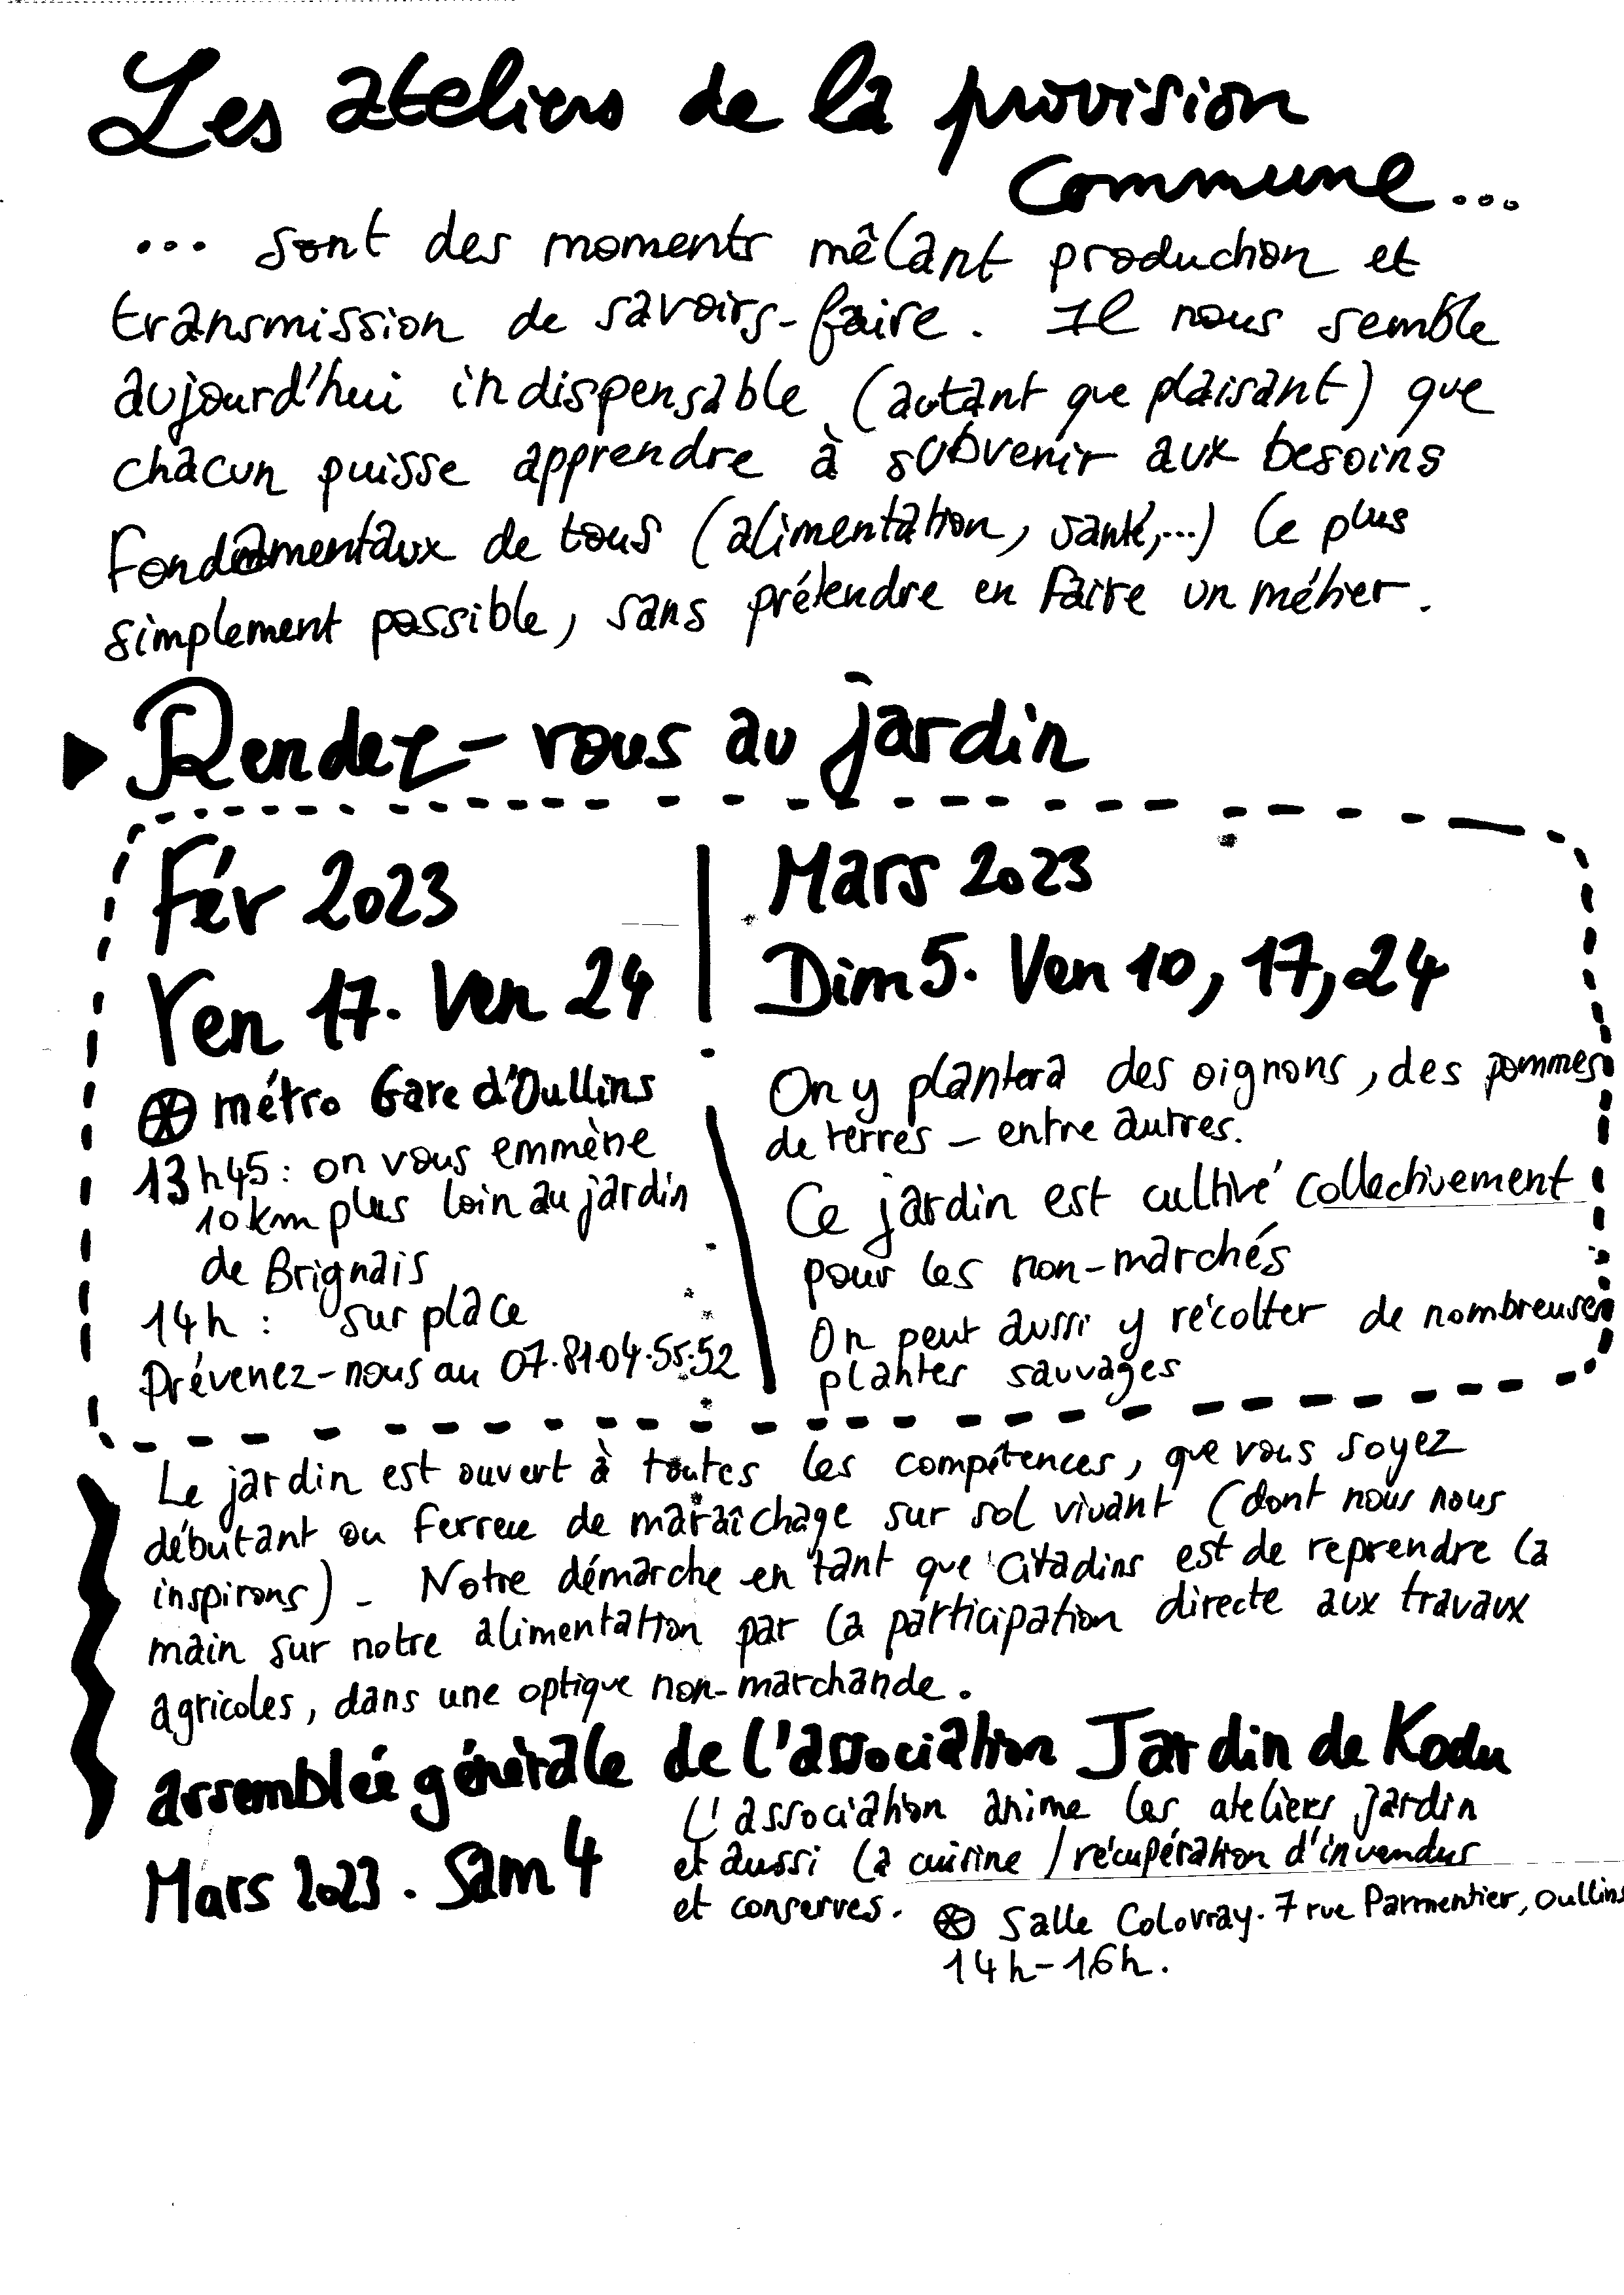 Les ateliers de la provision
Commune...
... sont des moments mêlant production et
transmission de savoirs-faire. Il nous semble
aujourd'hui indispensable (autant que plaisant) que
chacun puisse apprendre à subvenir aux besoins
fondamentaux de tous (alimentation, santé,...) le plus
simplement possible, sans prétendre en faire un métier.
Rendez-vous au jardin
Fév 2023
Ven 17. Ven 24
métro Gare d'Oullins
13h45: on vous emmène
10km plus loin au jardin
de Brignais
14h : sur place
Prévenez-nous au 07.81.04.55.52
Mars 2023
Dim 5. Ven 10, 17, 24
On y plantera des oignons, des pommes
de terres - entre autres.
Ce jardin est cultivé collectivement
pour les non-marchés
On peut aussi y récolter de nombreuses
plantes sauvages
Le jardin est ouvert à toutes les compétences, que vous soyez
débutant ou ferreue de maraîchage sur sol vivant (dont nous nous
inspirons) - Notre démarche en tant que citadins est de reprendre la
main sur notre alimentation par la participation directe aux travaux
agricoles, dans une optique non-marchande.
assemblée générale de l'association Jardin de Kodu
Mars 2023. Sam 4
L'association anime les ateliers jardin
et aussi la cuisine / récupération d'invendus
et conserves.
Salle Colovray. 7 rue Parmentier, Oullins
14h-16h.